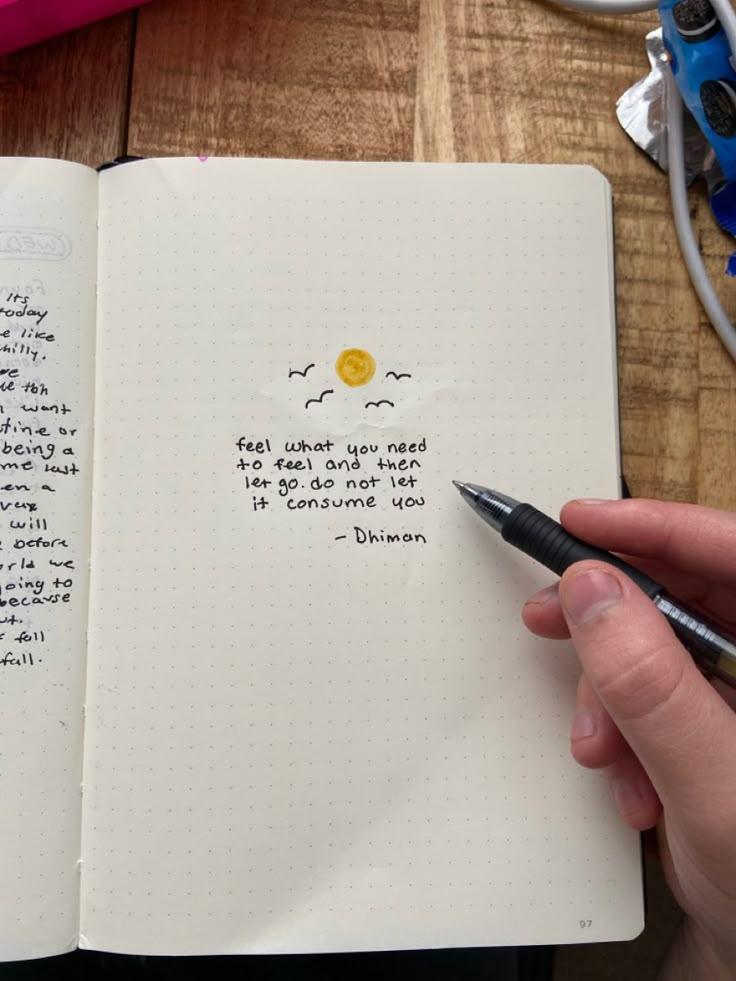 its
today
like
chilly.
want
or
being a
me last
en a
will
before
we
going to
because
fall
fall.
feel what you need
to feel and then
let go. do not let
it consume you
- Dhiman
97